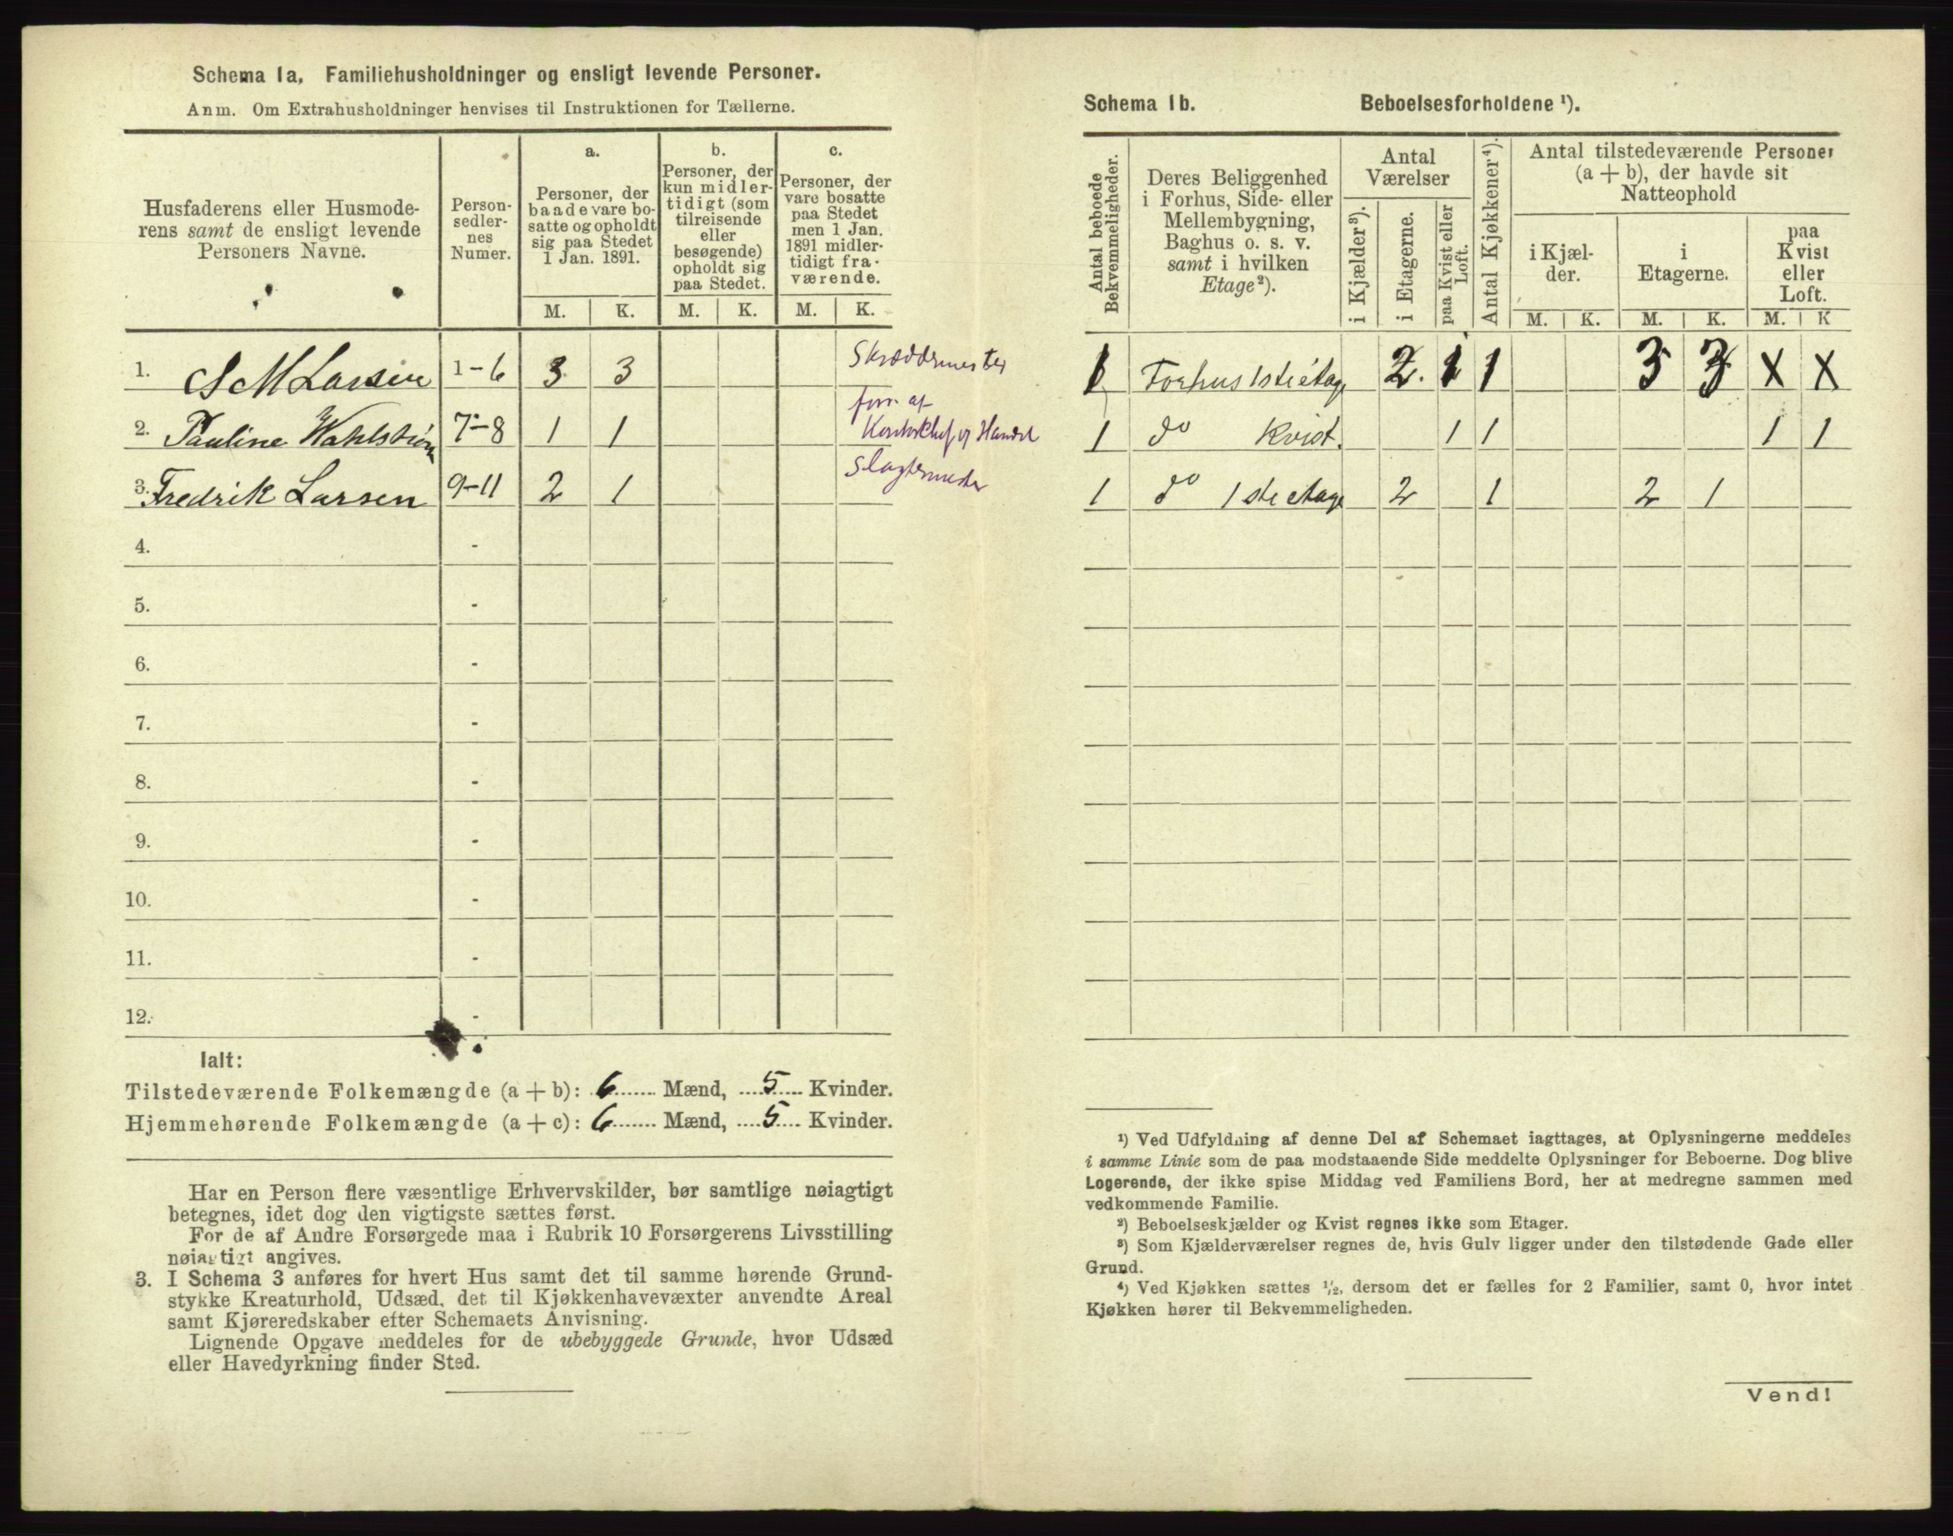 Schema 1a, Familiehusholdninger og ensligt levende Personer.
Anm. Om Extrahusholdninger henvises til Instruktionen for Tællerne.
Husfaderens eller Husmode-
rens samt de ensligt levende
Personers Navne.
Person-
sedler-
nes
Numer.
a.
Personer, der
baade vare bo-
satte og opholdt
sig paa Stedet
1 Jan. 1891.
b.
Personer, der
kun midler-
tidigt (som
tilreisende
eller
besøgende)
opholdt sig
paa Stedet.
c.
Personer, der
vare bosatte
paa Stedet
men 1 Jan.
1891 midler-
tidigt fra-
værende.
M. K. M. K. M. K.
1. S M Larsen 1-6 3 3 Skræddermester
2. Pauline Wahlstrøm 7-8 1 1 forr. af
3. Fredrik Larsen 9-11 2 1
4. -
5. -
6. -
7. -
8. -
9. -
10. -
11. -
12. -
Ialt:
Tilstedeværende Folkemængde (a + b): 6 Mænd, 5 Kvinder.
Hjemmehørende Folkemængde (a + c): 6 Mænd, 5 Kvinder.
Har en Person flere væsentlige Erhvervskilder, bør samtlige nøiagtigt
betegnes, idet dog den vigtigste sættes først.
For de af Andre Forsørgede maa i Rubrik 10 Forsørgerens Livsstilling
nøiagtigt angives.
3. I Schema 3 anføres for hvert Hus samt det til samme hørende Grund-
stykke Kreaturhold, Udsæd, det til Kjøkkenhavevæxter anvendte Areal
samt Kjøreredskaber efter Schemaets Anvisning.
Lignende Opgave meddeles for de ubebyggede Grunde, hvor Udsæd
eller Havedyrkning finder Sted.
Schema 1b. Beboelsesforholdene ¹).
Antal beboede
Bekvemmeligheder.
Deres Beliggenhed
i Forhus, Side- eller
Mellembygning,
Baghus o. s. v.
samt i hvilken
Etage²).
Antal
Værelser
i Kjælder³).
i Etagerne.
paa Kvist eller
Loft.
Antal Kjøkkener⁴).
Antal tilstedeværende Personer
(a + b), der havde sit
Natteophold
i Kjæl-
der.
i
Etagerne.
paa
Kvist
eller
Loft.
M. K. M. K. M. K
1 Forhus 1ste étage 2. 1 1 3 3 X X
1 do Kvist. 1 1 1 1
1 do 1ste etage 2 1 2 1
¹) Ved Udfyldning af denne Del af Schemaet iagttages, at Oplysningerne meddeles
i samme Linie som de paa modstaaende Side meddelte Oplysninger for Beboerne. Dog blive
Logerende, der ikke spise Middag ved Familiens Bord, her at medregne sammen med
vedkommende Familie.
²) Beboelseskjælder og Kvist regnes ikke som Etager.
³) Som Kjælderværelser regnes de, hvis Gulv ligger under den tilstødende Gade eller
Grund.
⁴) Ved Kjøkken sættes ¹/₂, dersom det er fælles for 2 Familier, samt 0, hvor intet
Kjøkken hører til Bekvemmeligheden.
Vend!